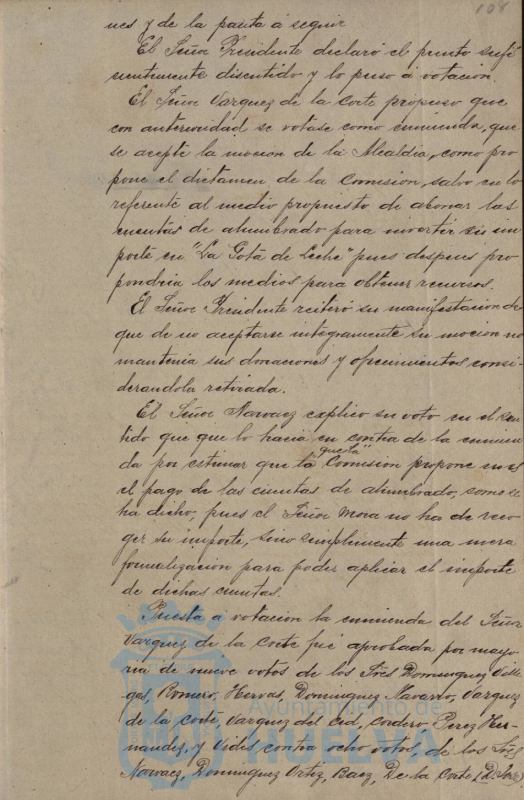 108
nes y de la pauta á seguir
El Señor Presidente declaró el punto sufi
sientemente discutido y lo puso á votacion.
El Señor Vazquez de la Corte propuso que
con anterioridad se votase como enmienda, que
se acepte la mocion de la Alcaldia, como pro
pone el dictamen de la Comision, salvo en lo
referente al medio propuesto de abonar las
cuentas de alumbrado para invertir su im
porte en "La Gota de Leche" pues despues pro
pondria los medios para obtener recursos.
El Señor Presidente reiteró su manifestacion de
que de no aceptarse integramente su mocion no
mantenia sus donaciones y ofrecimientos consi-
derandola retirada.
El Señor Narvaez explicó su voto en el sen
tido que que lo hacia en contra de la enmien
da por estimar que lo que la Comision propone no es
el pago de las cuentas de alumbrado, como se
ha dicho, pues el Señor Mora no ha de reco
ger su importe, sino simplemente una mera
formalizacion para poder aplicar el importe
de dichas cuentas.
Puesta á votacion la enmienda del Señor
Vazquez de la Corte fué aprobada por mayo
ria de nueve votos de los Sres Dominguez Ville
gas, Romero, Hervas, Dominguez Navarro, Vazquez
de la Corte, Vazquez del Cid, Cordero, Perez Her-
nandez, y Vides, contra ocho votos, de los Sres
Narvaez, Dominguez Ortiz, Baez, De la Corte (D. José)
Ayuntamiento de
HUELVA